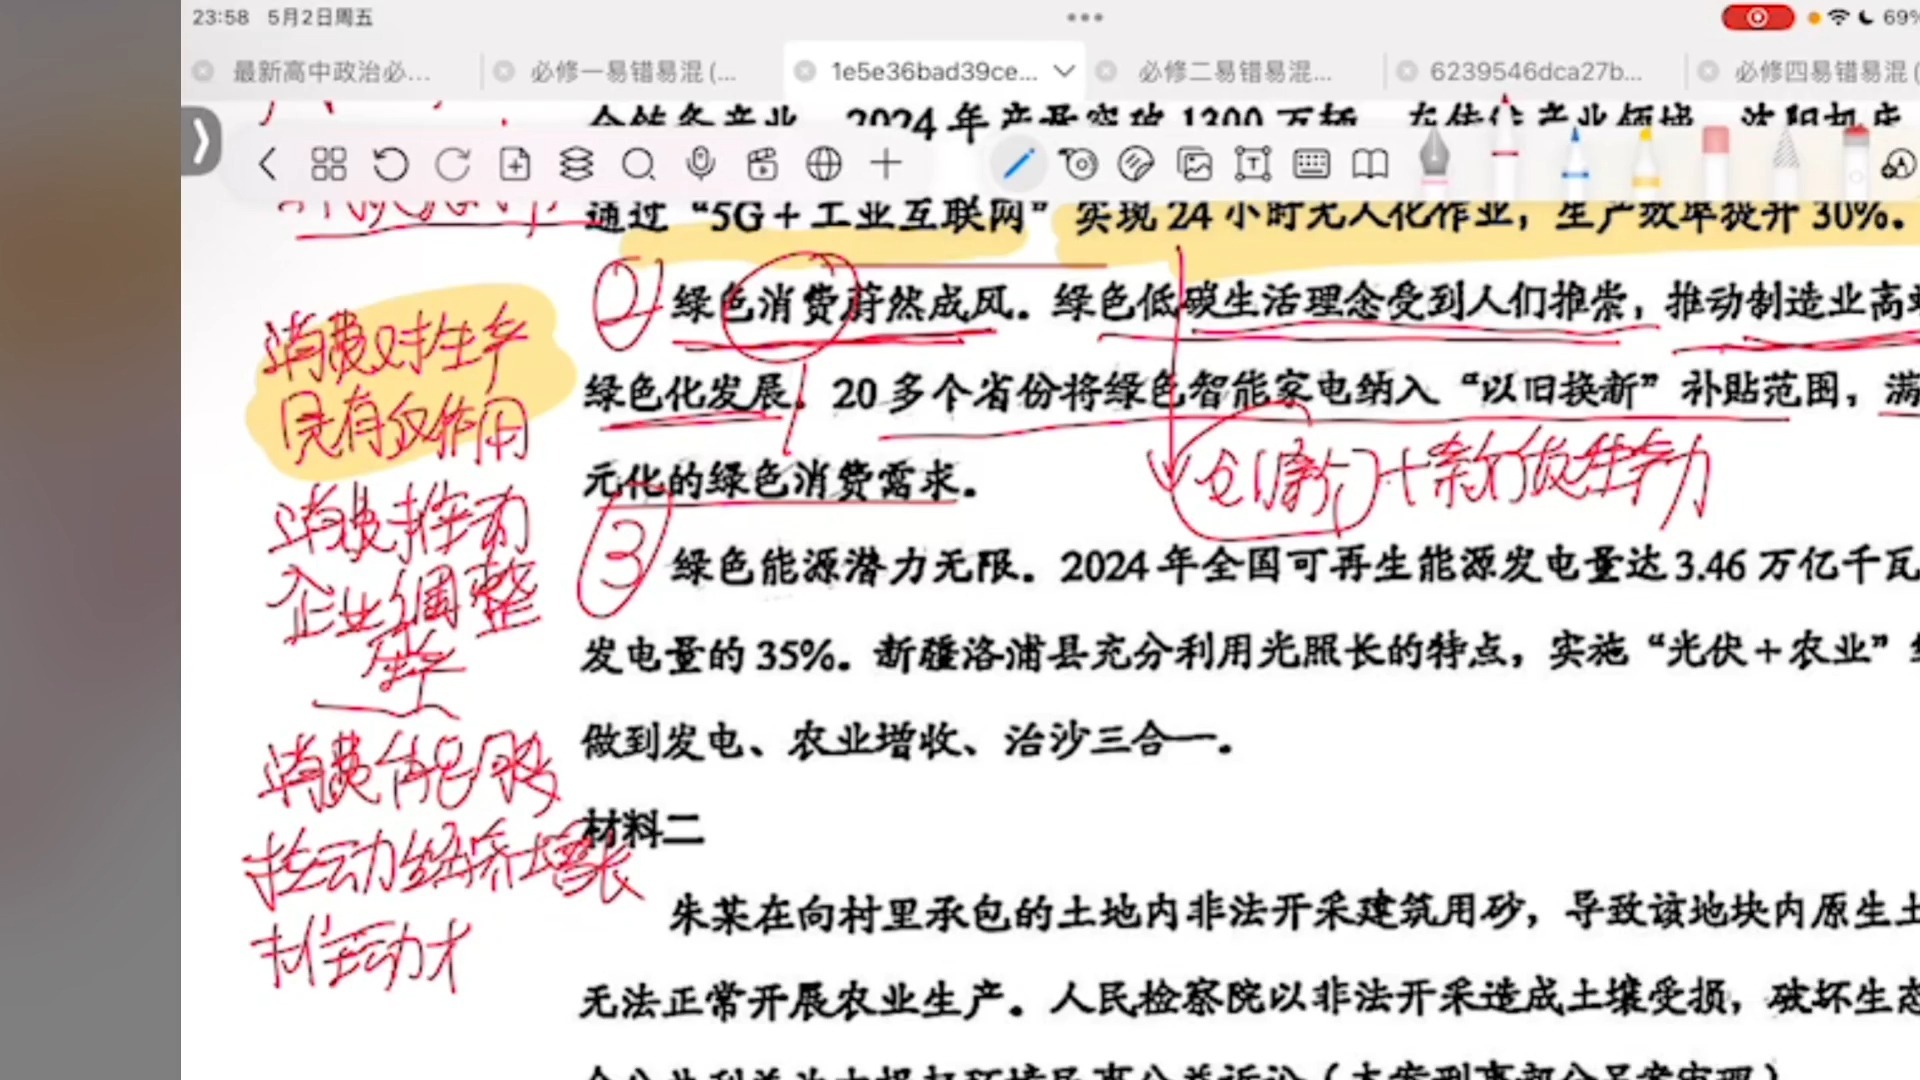 23:58 5月2日周五
69%
最新高中政治必... 必修一易错易混(... 1e5e36bad39ce... 必修二易错易混... 6239546dca27b... 必修四易错易混(
2024年产量突破1300万辆
通过“5G+工业互联网”实现24小时无人化作业，生产效率提升30%。
② 绿色消费蔚然成风。绿色低碳生活理念受到人们推崇，推动制造业高
绿色化发展。20多个省份将绿色智能家电纳入“以旧换新”补贴范围，满
元化的绿色消费需求。
创新+新质生产力
③ 绿色能源潜力无限。2024年全国可再生能源发电量达3.46万亿千瓦
发电量的35%。新疆洛浦县充分利用光照长的特点，实施“光伏+农业”
做到发电、农业增收、治沙三合一。
材料二
朱某在向村里承包的土地内非法开采建筑用砂，导致该地块内原生土
无法正常开展农业生产。人民检察院以非法开采造成土壤受损，破坏生态
消费对生产
具有反作用
消费推动
企业调整
生产
消费
拉动经济增长